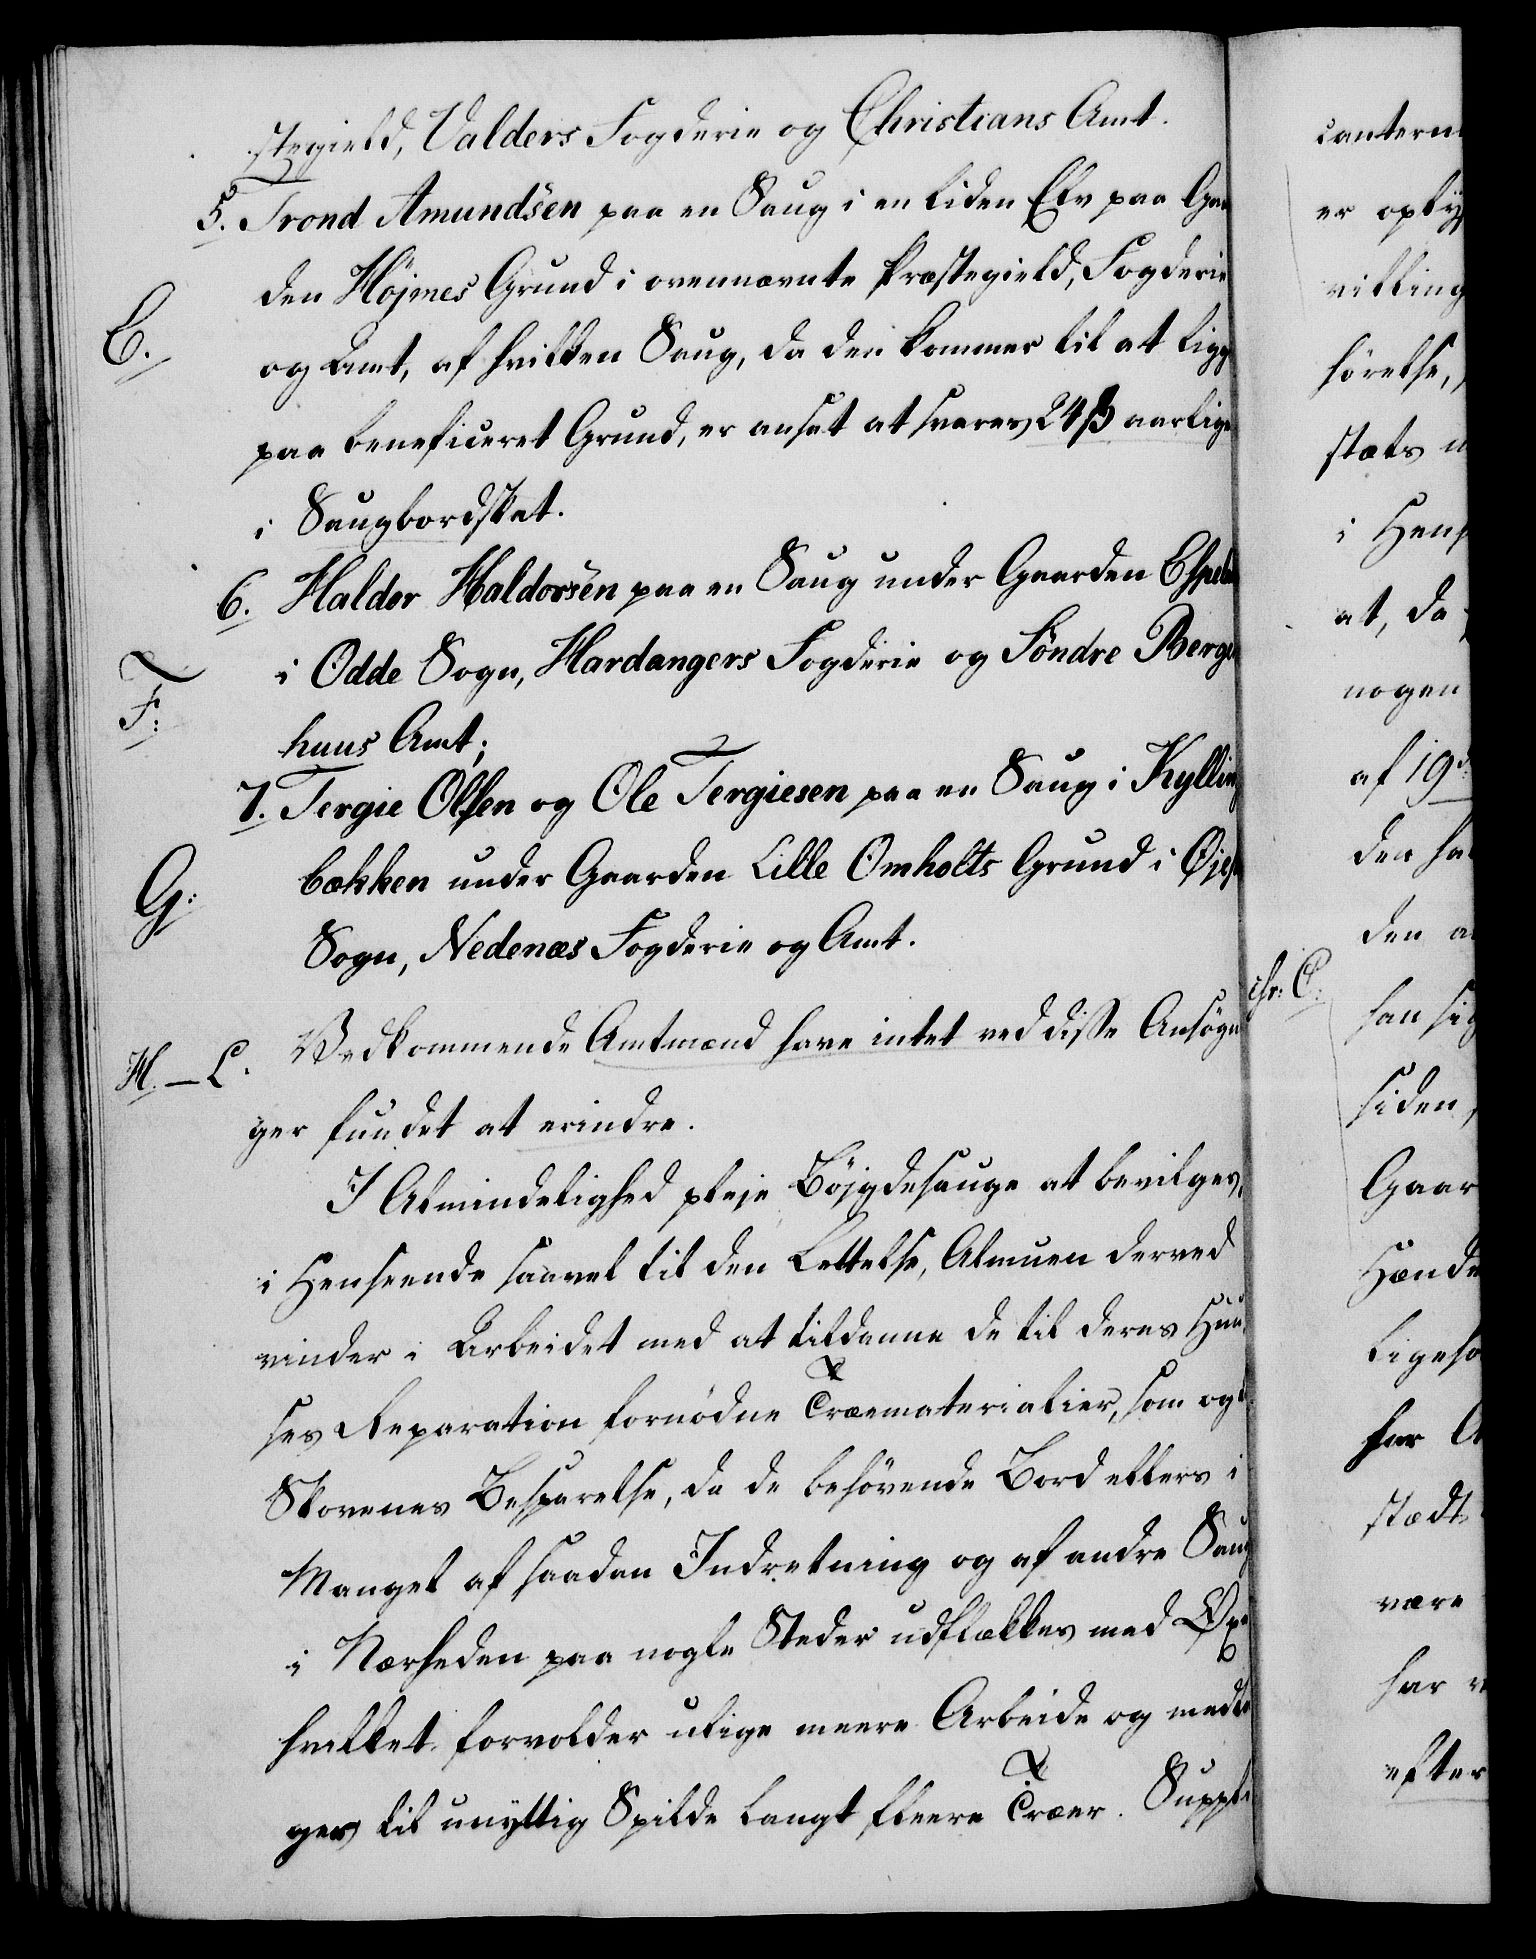 stegield, Valders Fogderie og Christians Amt.
5. Trond Amundsen paa en Saug i en liden Elv paa Gaa
den Höjmes Grund i ovennævnte Præstegield, Fogderie
E.
og Amt, af hvilken Saug, da den kommer til at ligge
paa beneficeret Grund, er ansat at svares 24 ß aarlig
i Saugbordskat.
6. Haldor Haldorsen paa en Saug under Gaarden Espeland
i Odde Sogn, Hardangers Fogderie og Söndre Bergen
F:
huus Amt;
7. Tergie Olsen og Ole Tergiesen paa en Saug i Kylling
bækken under Gaarden Lille Omholts Grund i Øje
G:
Sogn, Nedenæs Fogderie og Amt.
H. – L.
Vedkommende Amtmænd have intet ved disse Ansögnin
ger fundet at erindre.
I Almindelighed pleje Böjgdesauge at bevilges,
i Henseende saavel til den Lettelse, Almuen derved
vinder i Arbeidet med at tildanne de til deres Huu
ses Reparation fornödne Træmaterialier, som og
Skovenes Besparelse, da de behövende Bord ellers i
Mangel af saadan Indretning og af andre Saug
i Nærheden paa nogle Steder udflækkes med Øxe
hvilket forvolder ulige meere Arbeide og medta
ges til unyttig Spilde langt fleere Træer. Suppli
canterne
er oply
villing
hörelse,
stæts
i Hens
at, da
nogen
af 19de
den ha
den a
cfr: C:
han sig
siden,
Gaar
Hænde
ligeso
har
stædt
være
har
efter